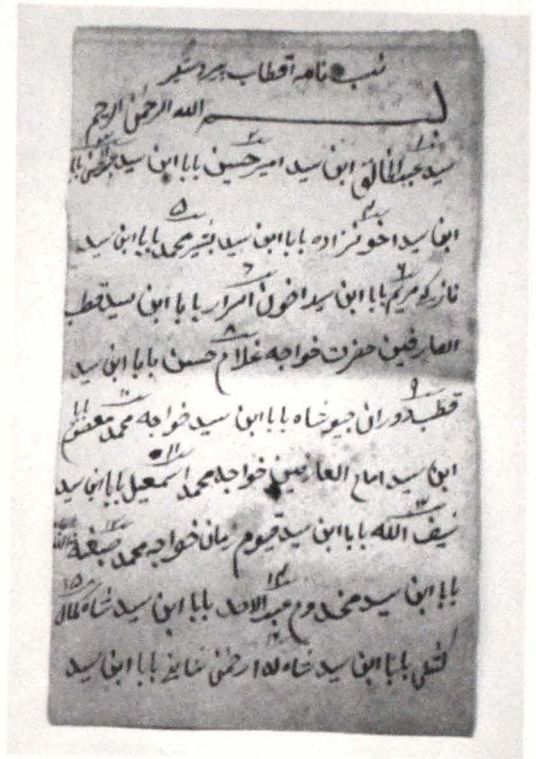 نسب نامه اقطاب پیر دستگیر
بسم الله الرحمن الرحیم
سید عبد الخالق ابن سید امیر حسین بابا ابن سید بابا
ابن سید اخونزاده بابا ابن سید بشیر محمد بابا ابن سید
بابا ابن سید اخون اکرار بابا ابن سید قطب
العارفین حضرت خواجه غلام حسن بابا ابن سید
قطب دوران جیو شاه بابا ابن سید خواجه محمد معصوم بابا
ابن سید امام العارفین خواجه محمد اسمعیل بابا ابن سید
سیف الله بابا ابن سید قیوم خواجه محمد صبغة الله
بابا ابن سید مخدوم عبد الاحد بابا ابن سید شاه کمال
کتلی بابا ابن سید شاه بابا ابن سید